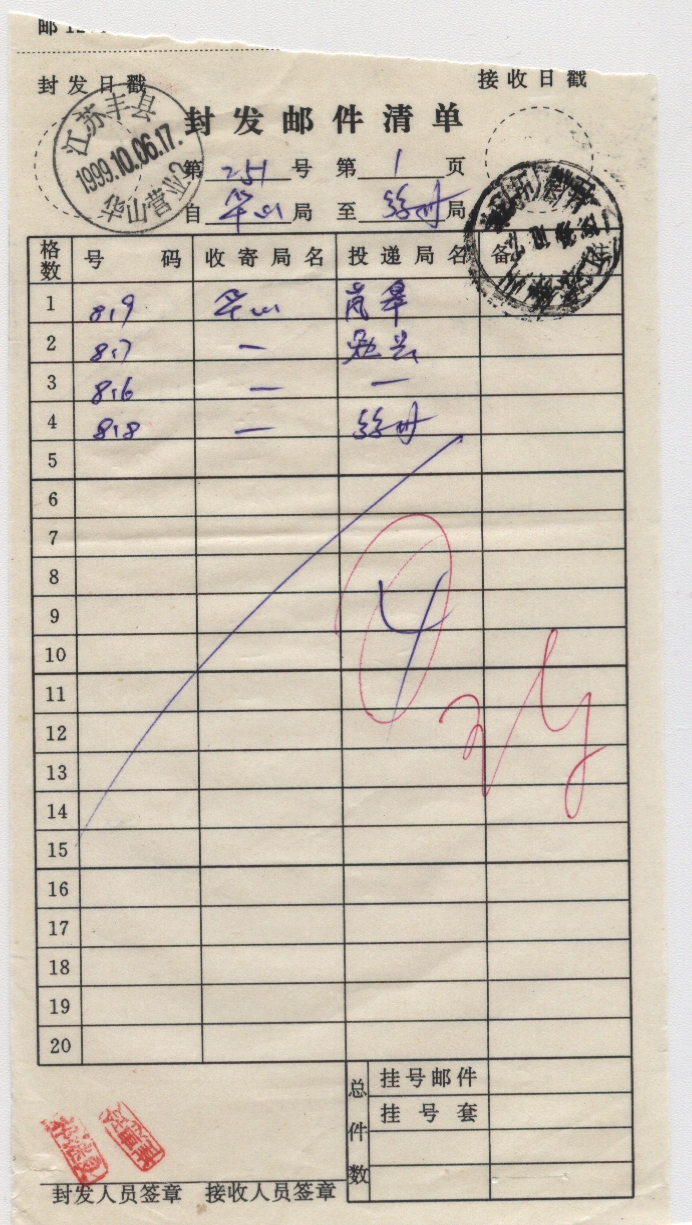 邮
封发日戳
接收日戳
江苏丰县
1999.10.06.17.
华山营业2
封发邮件清单
第 251 号 第 1 页
自 华山 局 至 徐州 局
格数 号码 收寄局名 投递局名 备注
1 819 华山
2 817 —
3 816 — —
4 818 — 徐州
5
6
7
8
9
10
11
12
13
14
15
16
17
18
19
20
4
总件数
挂号邮件
挂号套
封发人员签章 接收人员签章